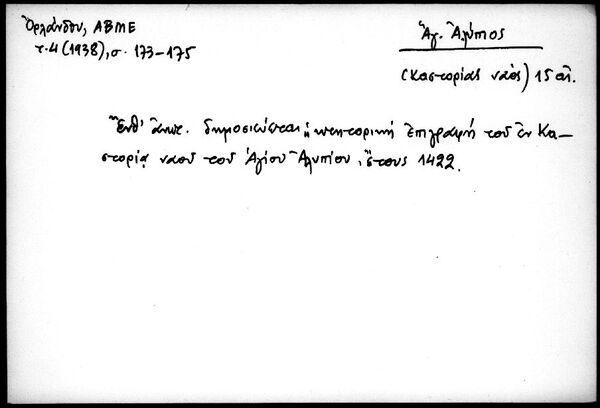 Ὀρλάνδου, ΑΒΜΕ
τ. 4 (1938), σ. 173–175
Ἅγ. Ἀλύπιος
(Καστορίας ναός) 15 αἰ.
Ἔνθ' ἄνωτ. δημοσιεύεται ἡ κτητορική ἐπιγραφή τοῦ ἐν Κα–
στορίᾳ ναοῦ τοῦ Ἁγίου Ἀλυπίου, ἔτους 1422.